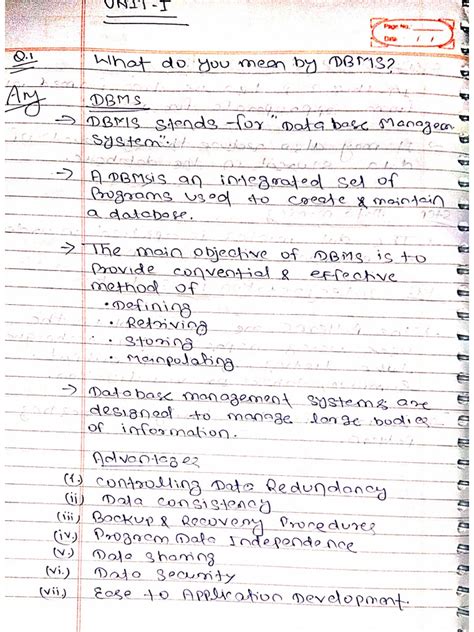 UNIT-I
Page No.
Date / /
Q.1 What do you mean by DBMS?
Ans DBMS
→ DBMS stands for "Database Managemen
System".
→ A DBMS is an integrated set of
Programs used to create & maintain
a database.
→ The main objective of DBMS is to
Provide convential & effective
method of
• Defining
• Retriving
• Storing
• Manpolating
→ Database management systems are
designed to manage large bodies
of information.
Advantages
(i) Controlling Data Redundancy
(ii) Data Consistency
(iii) Backup & Recovery Procedures
(iv) Program Data Independence
(v.) Data Sharing
(vi.) Data Security
(vii) Ease to Application Development.